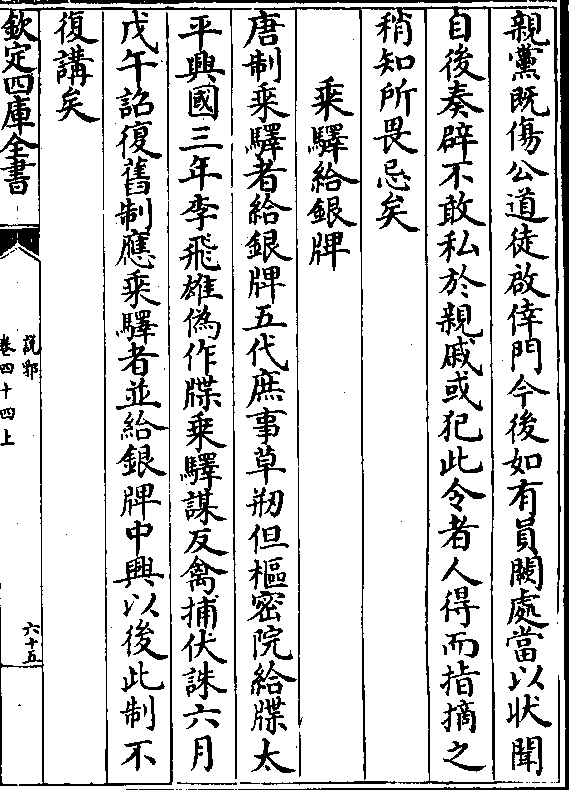 親黨既傷公道徒啟倖門今後如有員闕處當以狀聞
自後奏辟不敢私於親戚或犯此令者人得而指摘之
稍知所畏忌矣
乘驛給銀牌
唐制乘驛者給銀牌五代庶事草剏但樞密院給牒太
平興國三年李飛雄偽作牒乘驛謀反禽捕伏誅六月
戊午詔復舊制應乘驛者並給銀牌中興以後此制不
復講矣
欽定四庫全書
說郛
卷四十四上
六十五